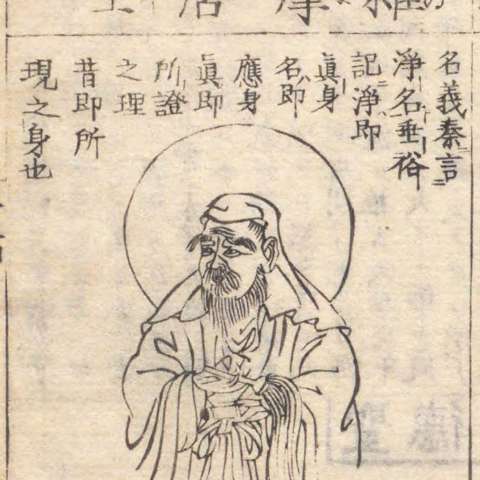 維摩居士
名義秦言
淨名垂裕
記淨即
眞身
名即
應身
眞即
所證
之理
昔即所
現之身也